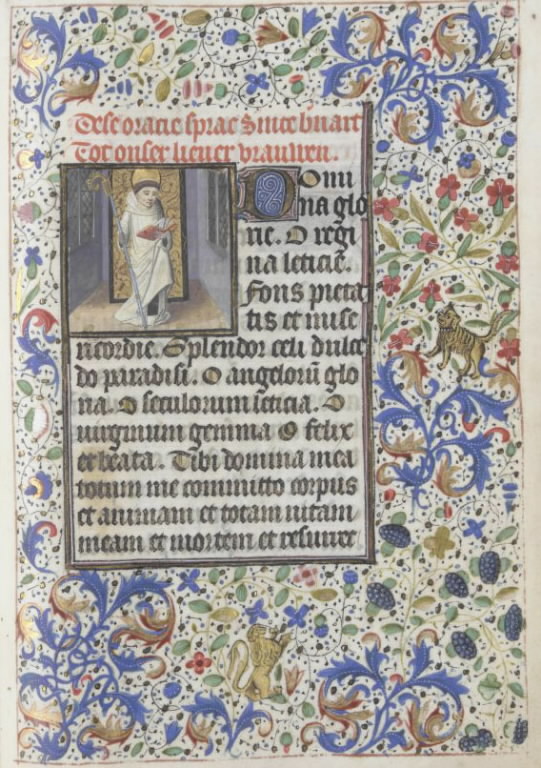 Dese oracie sprac Sinte bñaert
Tot onser liever vrauwen.
Domi
na glo
rie. O regi
na leticie.
Fons pieta
tis et mise
ricordie. Splendor celi dulce
do paradisi. O angeloru̅ glo
ria. O seculorum leticia. O
virginum gemma O felix
et beata. Tibi domina mea
totum me committo corpus
et animam et totam vitam
meam et mortem et resurrec